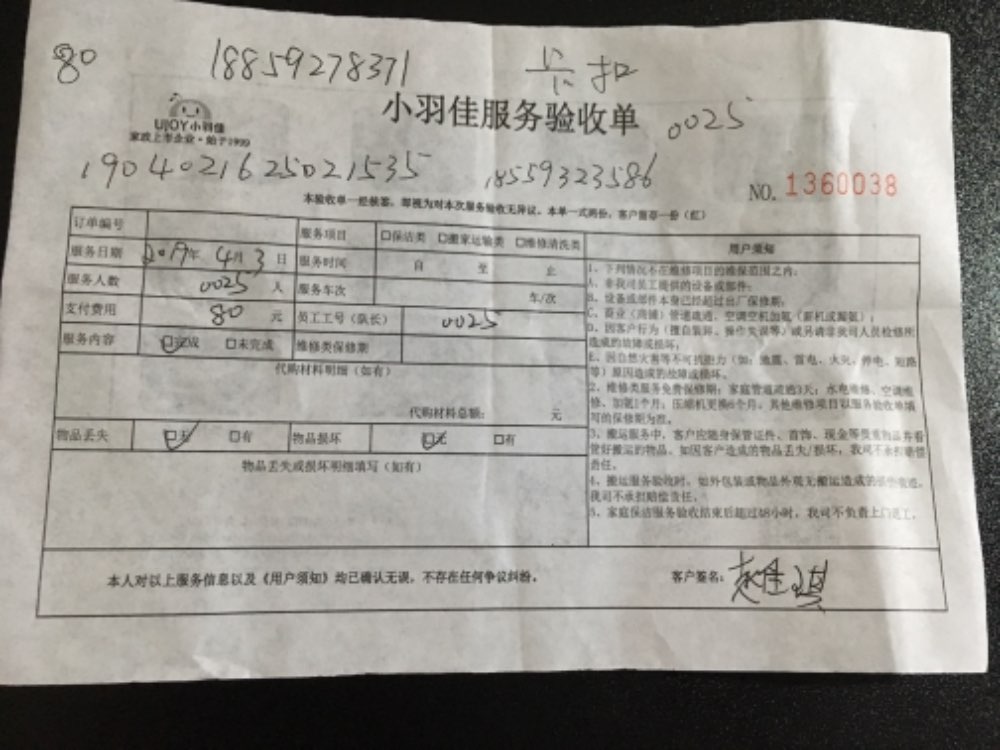 80 18859278371 扣
UJOY小羽佳
家政上市企业·始于1999
小羽佳服务验收单 0025
1904021625021535 18559323586
NO. 1360038
本验收单一经核签,即视为对本次服务验收无异议。本单一式两份,客户留存一份(红)
订单编号 服务项目 □保洁类 □搬家运输类 □维修清洗类
服务日期 2019年 4月 3日 服务时间 自 至 止
服务人数 0025 人 服务车次 车/次
支付费用 80 元 员工工号(队长) 0025
服务内容 ☑完成 □未完成 维修类保修期
代购材料明细(如有)
代购材料总额: 元
物品丢失 ☑无 □有 物品损坏 ☑无 □有
物品丢失或损坏明细填写(如有)
用户须知
1、下列情况不在维修项目的维保范围之内:
A、非我司员工提供的设备或部件;
B、设备或部件本身已经超过出厂保修期;
C、商业(商铺)管道疏通、空调空机加氟(新机或漏氟);
D、因客户行为(擅自装卸、操作失误等)或另请非我司人员检修所
造成的故障或损坏;
E、因自然灾害等不可抗能力(如:地震、雷电、火灾、停电、短路
等)原因造成的故障或损坏。
2、维修类服务免费保修期:家庭管道疏通3天;水电维修、空调维
修、加氟1个月;压缩机更换6个月。其他维修项目以服务验收单填
写的保修期为准。
3、搬运服务中,客户应随身保管证件、首饰、现金等贵重物品并看
管好搬运的物品。如因客户造成的物品丢失/损坏,我司不承担赔偿
责任。
4、搬运服务验收时,如外包装或物品外观无搬运造成的
我司不承担赔偿责任。
5、家庭保洁服务验收结束后超过48小时,我司不负责上门返工。
本人对以上服务信息以及《用户须知》均已确认无误,不存在任何争议纠纷。 客户签名: